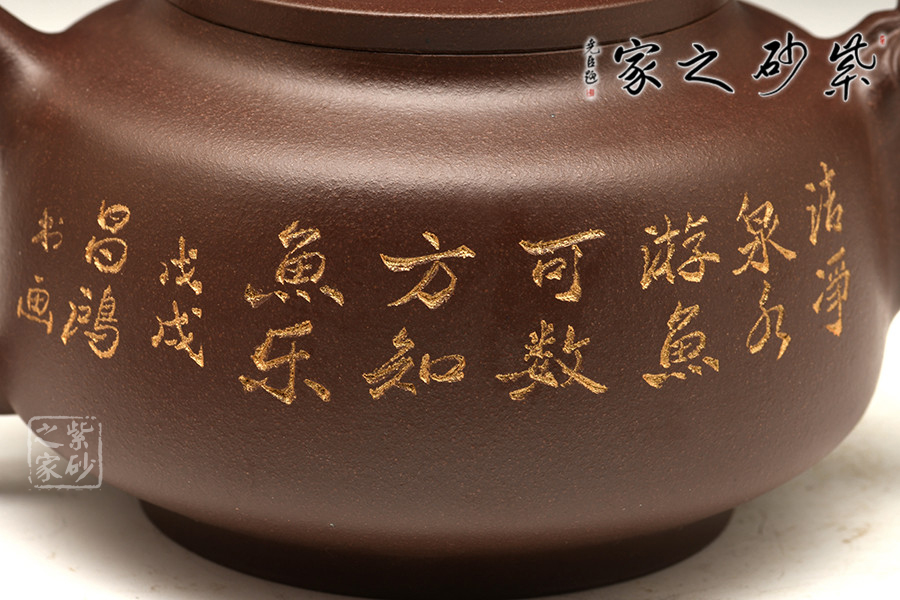 紫砂之家
洁净
泉水
游魚
可数
方知
魚乐
戊戌
昌鸿
书画
紫砂
之家